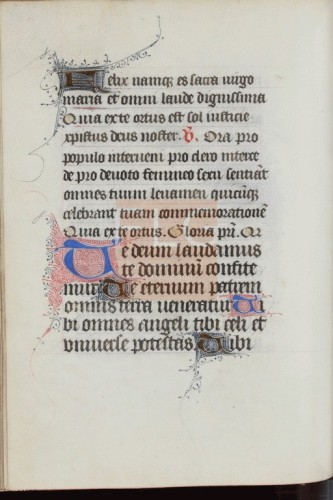 Felix namque es sacra uirgo
maria et omni laude dignissima
Quia ex te ortus est sol iusticie
xpistus deus noster. V. Ora pro
populo interueni pro clero interce
de pro deuoto femineo sexu sentiāt
omnes tuum leuamen quicūq̄
celebrant tuam commemorationē
Quia ex te ortus. Gloria pri. Qr
Te deum laudamus
te dominū confite
mur Te eternum patrem
omnis terra ueneratur Ti
bi omnes angeli tibi celi et
vniuerse potestates Tibi